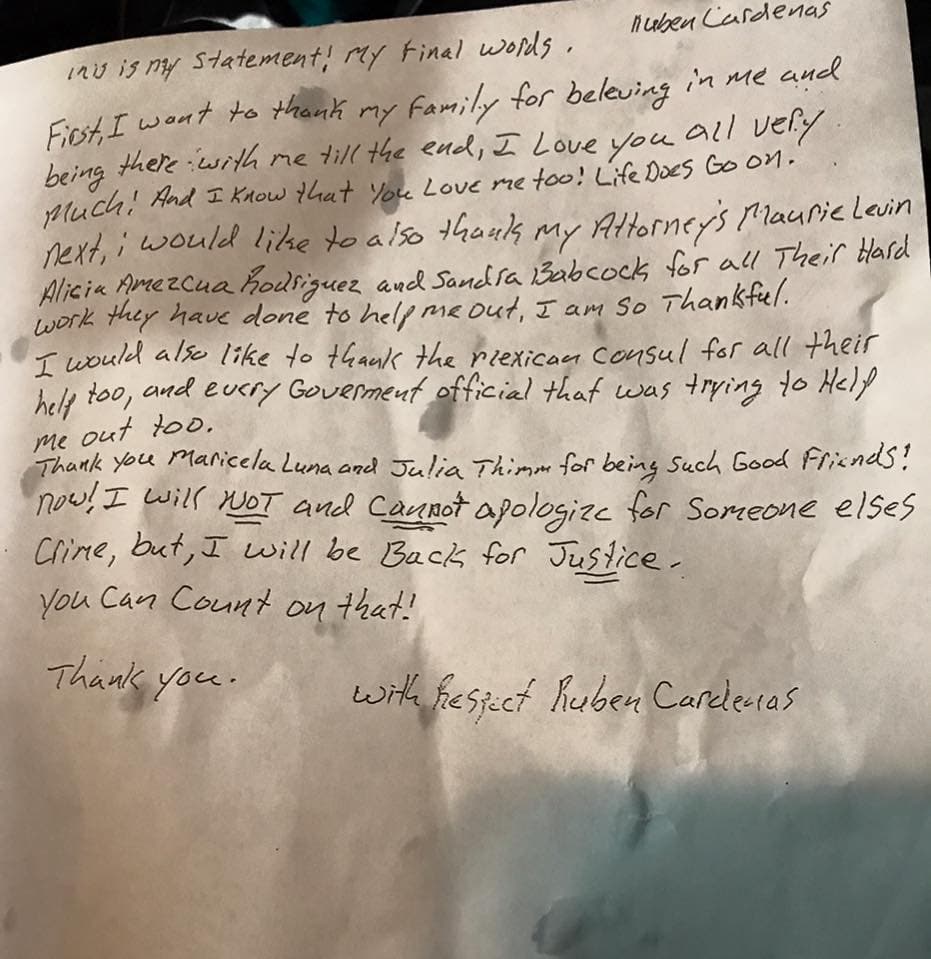 Ruben Cardenas
This is my Statement! My Final Words.
First, I want to thank my Family for beleving in me and
being there with me till the end, I Love you all very
Much! And I Know that You Love me too! Life Does Go on.
Next, i would like to also thank my Attorney's Maurie Levin
Alicia Amezcua Rodriguez and Sandra Babcock for all Their Hard
work they have done to help me out, I am so Thankful.
I would also like to thank the Mexican Consul for all their
help too, and every Goverment official that was trying to Help
me out too.
Thank you Maricela Luna and Julia Thimm for being Such Good Friends!
Now! I will NOT and Cannot apologize for Someone elses
Crime, but, I will be Back for Justice.
You Can Count on that!
Thank you.
With Respect Ruben Cardenas